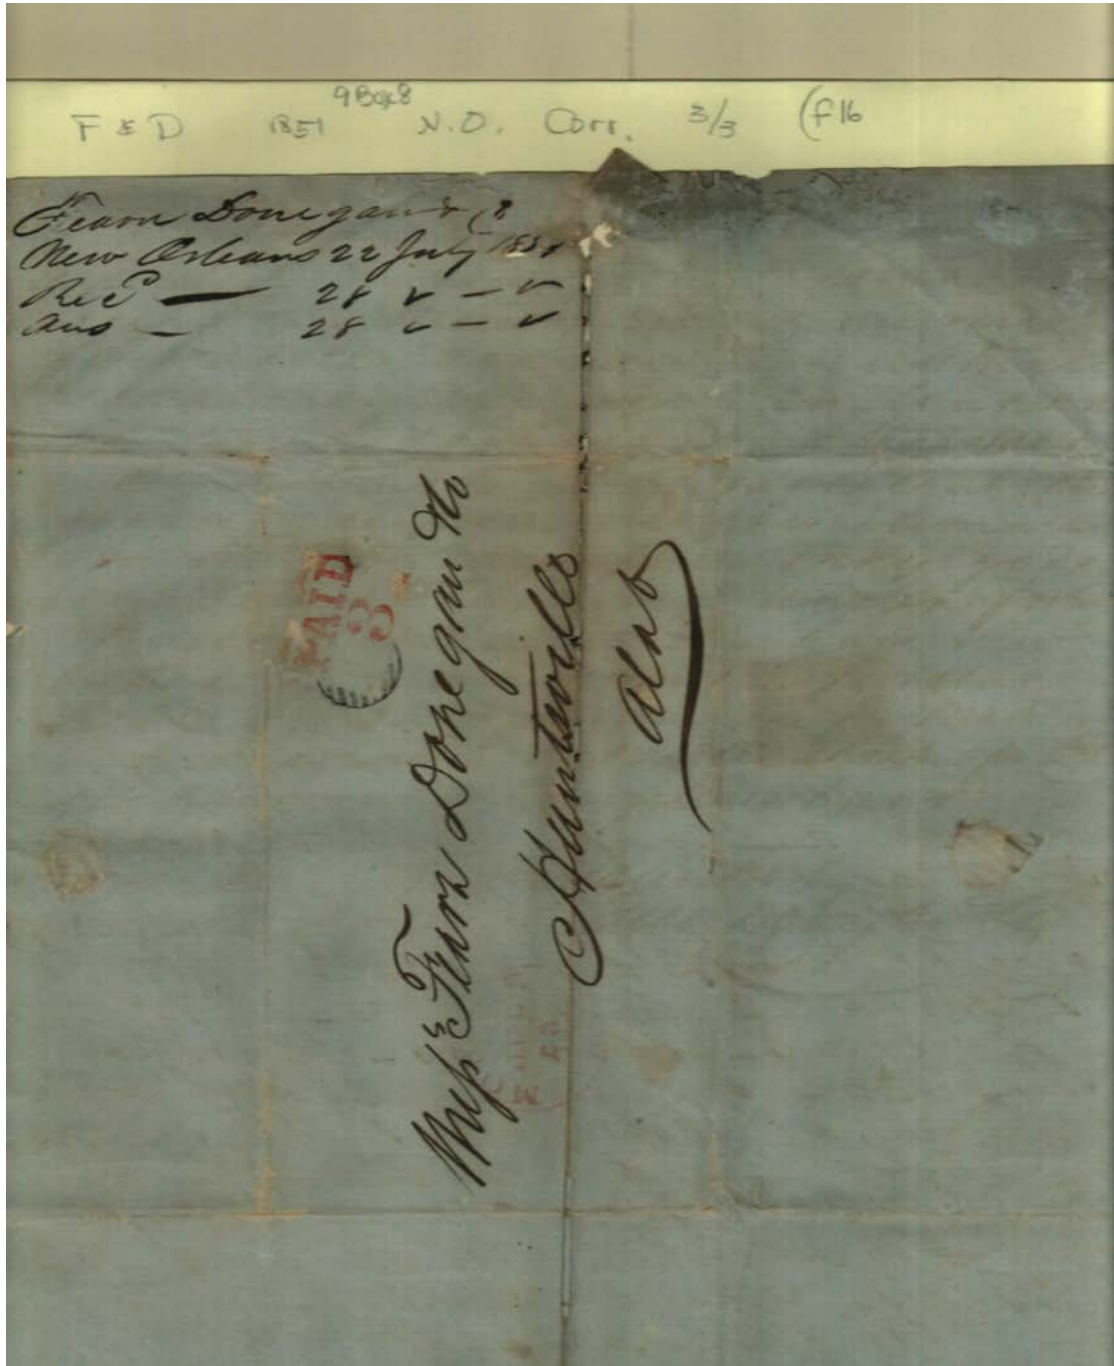 9 Box 8
F & D 1851 N.O. Corr. 3/3 (f16
Fearn Donegan & Co
New Orleans 22 July 1851
Recd — 28 " — "
Ans — 28 " — "
PAID
3
Mess Fearn Donegan & Co
Huntsville
Alab